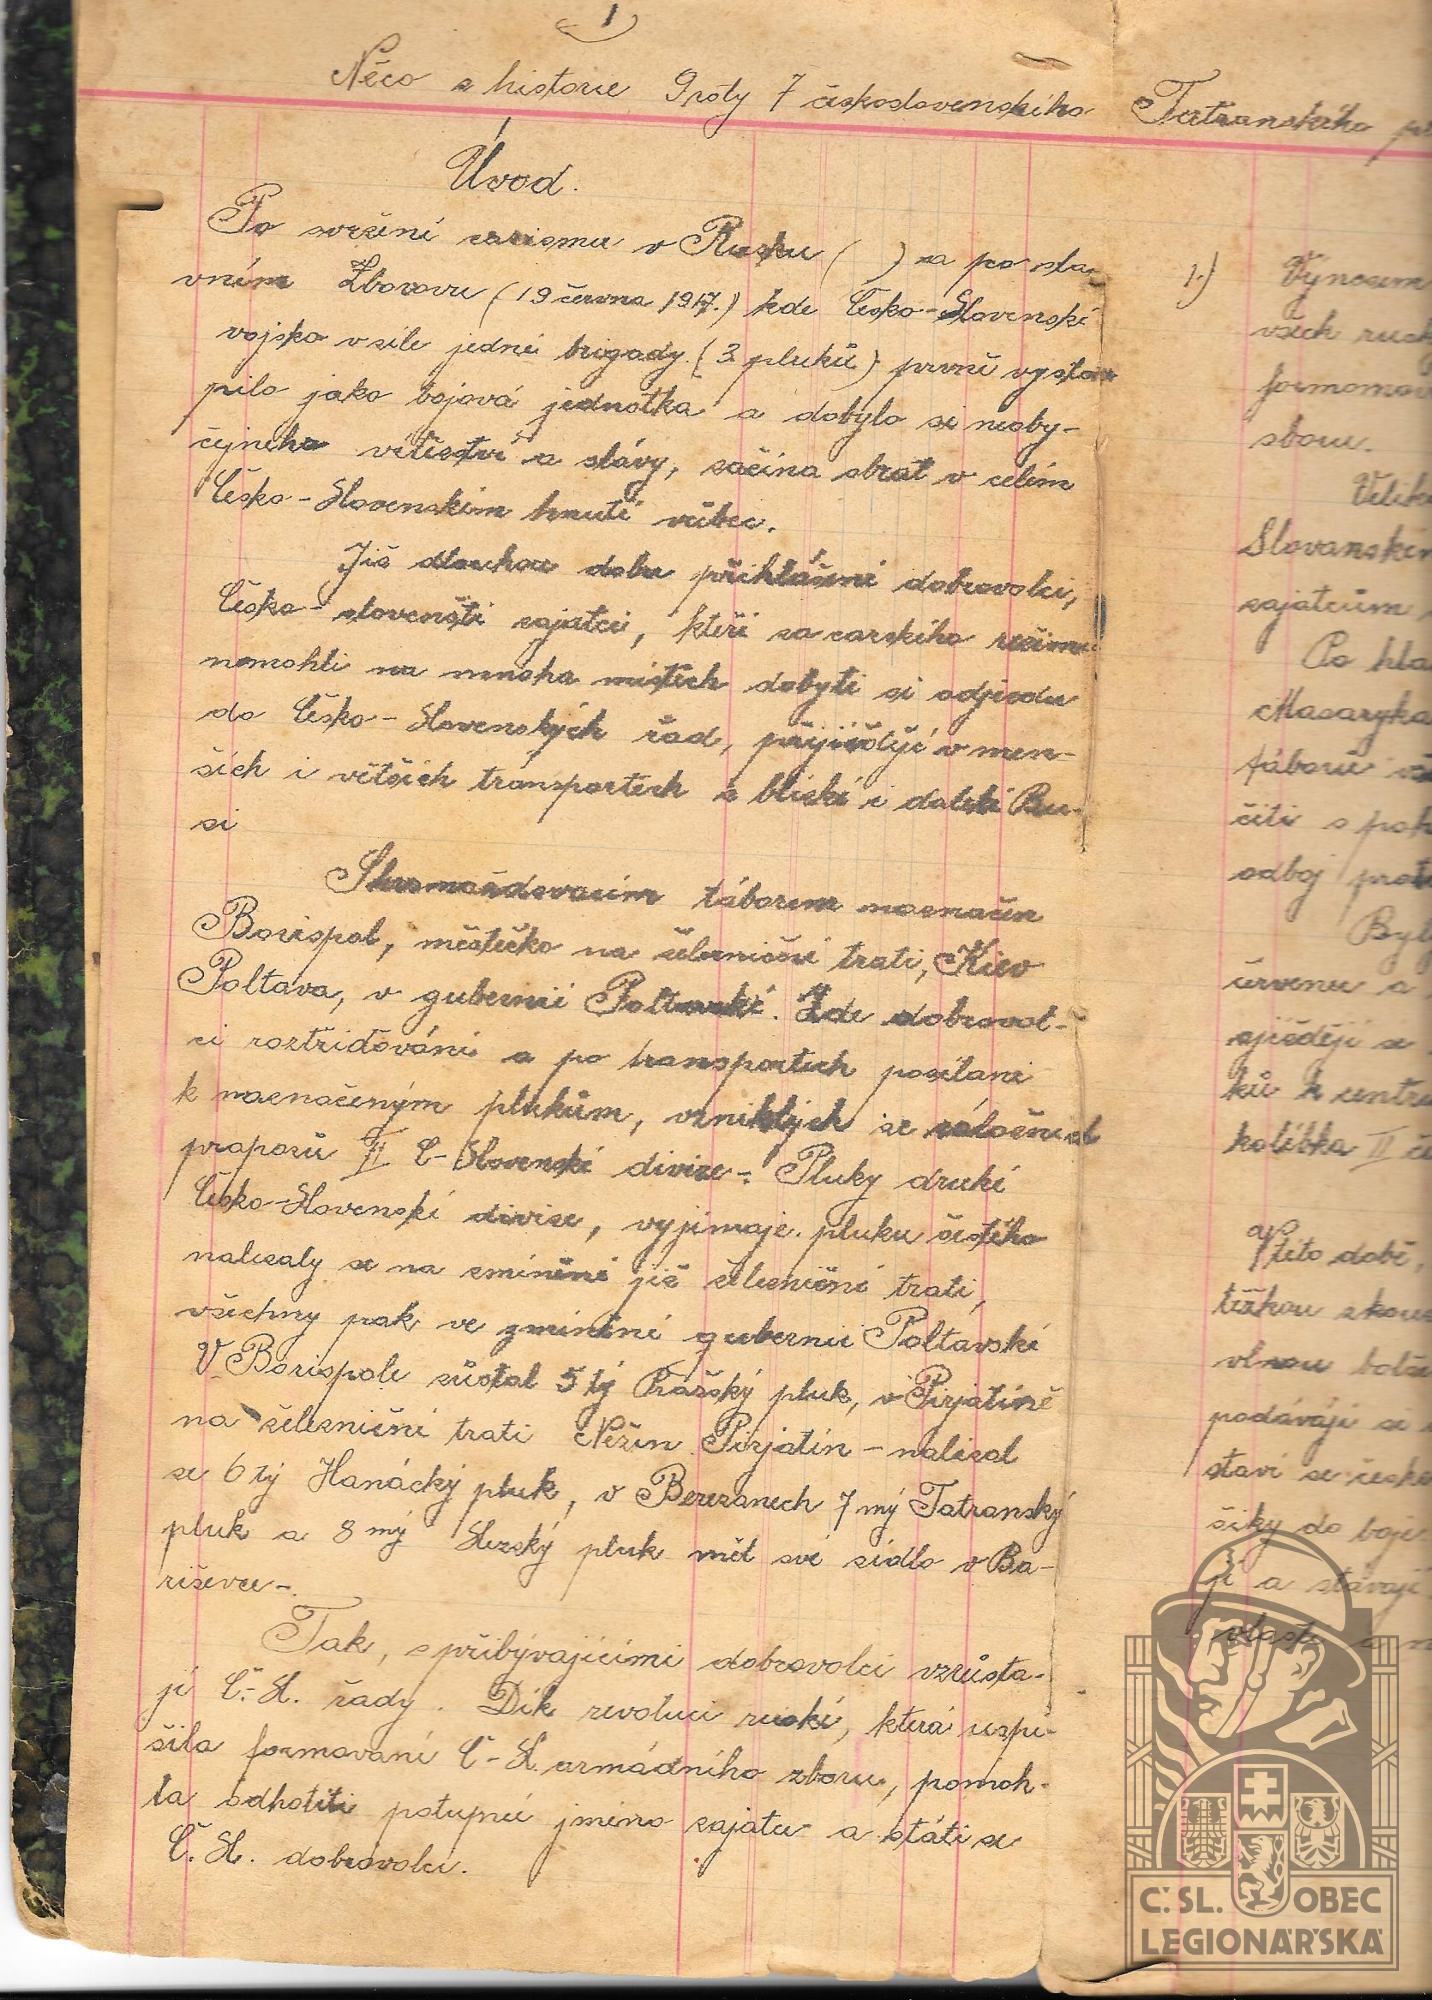 1
Něco z historie 9 roty 7 československého Tatranského
Úvod.
Po svržení carismu v Rusku ( ) a po sla-
vném Zborovu (19 června 1917.) kde Česko-Slovenské
vojsko v síle jedné brigady (3 pluků) prvně vystou-
pilo jako bojová jednotka a dobylo si neoby-
čejného vítěství a slávy, začíná obrat v celém
Česko-Slovenském hnutí vůbec.
Již dlouhou dobu přihlášení dobrovolci,
Česko-slovenští zajatci, kteří za carského režimu
nemohli na mnoha místech dobyti si odjezdu
do Česko-Slovenských řad, přijíždějí v men-
ších i větších transportech z blízké i daleké Ru-
si
Shromažďovacím táborem naznačen
Borispol, městečko na železniční trati, Kiev
Poltava, v gubernii Poltavské. Zde dobrovol-
ci roztřiďováni a po transportech posíláni
k naznačeným plukům, vzniklých ze záložních
praporů II Č-Slovenské divise-. Pluky druhé
Česko-Slovenské divise, vyjímaje pluku šestého
nalezaly se na zmíněné již železniční trati,
všechny pak ve zmíněné gubernii Poltavské
V Borispole zůstal 5tý Pražský pluk, v Pirjatině
na železniční trati Něžin Pirjatin - nalezal
se 6tý Hanácký pluk, v Berezanech 7mý Tatranský
pluk a 8mý Slezský pluk měl své sídlo v Ba-
riševce-.
Tak, s přibývajícími dobrovolci vzrůsta-
jí Č.-Sl. řady. Dík revoluci ruské, která uspí-
šila formování Č-Sl. armádního zboru, pomoh-
la odhoditi potupné jméno zajatce a státi se
Č. Sl. dobrovolci.
1.) Výnosem
všech rusk
formova
sboru.
Slovanském
zajatcům
Po hla
Masaryka
táborů
čiti s pok
odboj proti
červenu a
zjíždějí se
ků k centr
kolébka II
V této době,
těžkou zkou
vlnou bolše
podávají se
staví se česk
šiky do boje
jí a stávají
vlast
Č. SL. OBEC
LEGIONÁŘSKÁ